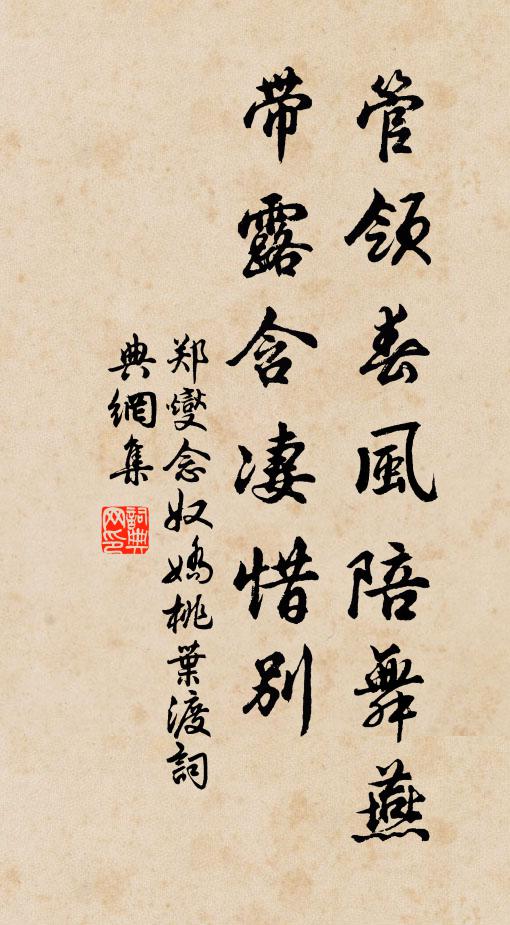 管領春風陪舞燕
帶露含凄惜別
郑燮念奴嬌桃葉渡詞
典網集
詞典
网印